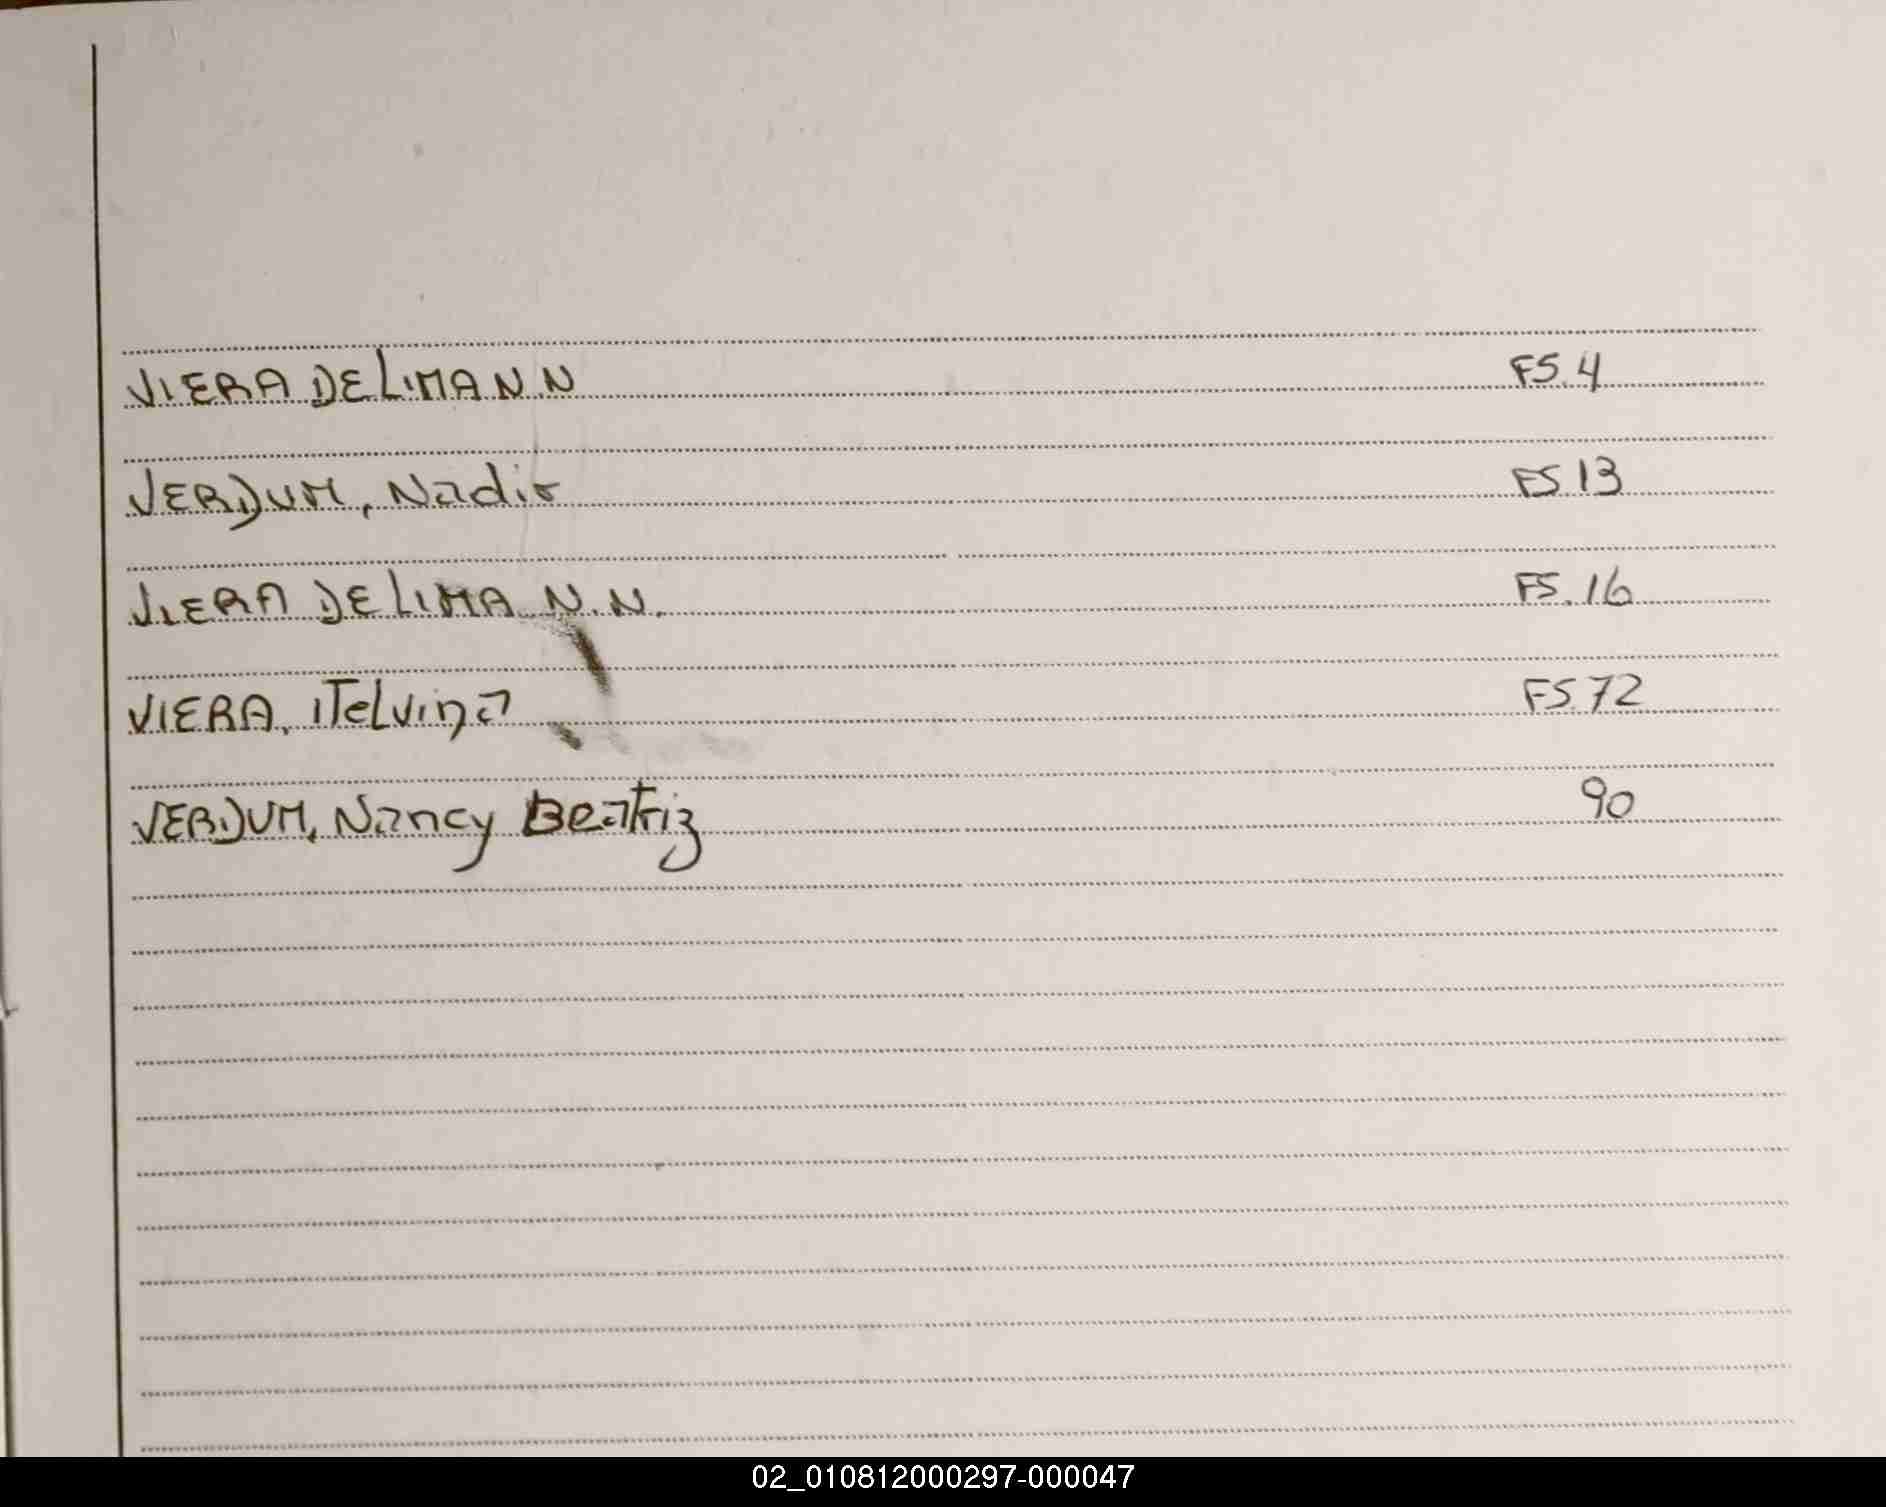 VIERA DE LIMA N.N FS.4
VERDUM, Nadir FS 13
VIERA DE LIMA N.N. FS.16
VIERA, iTelvina FS.72
VERDUM, Nancy Beatriz 90
02_010812000297-000047